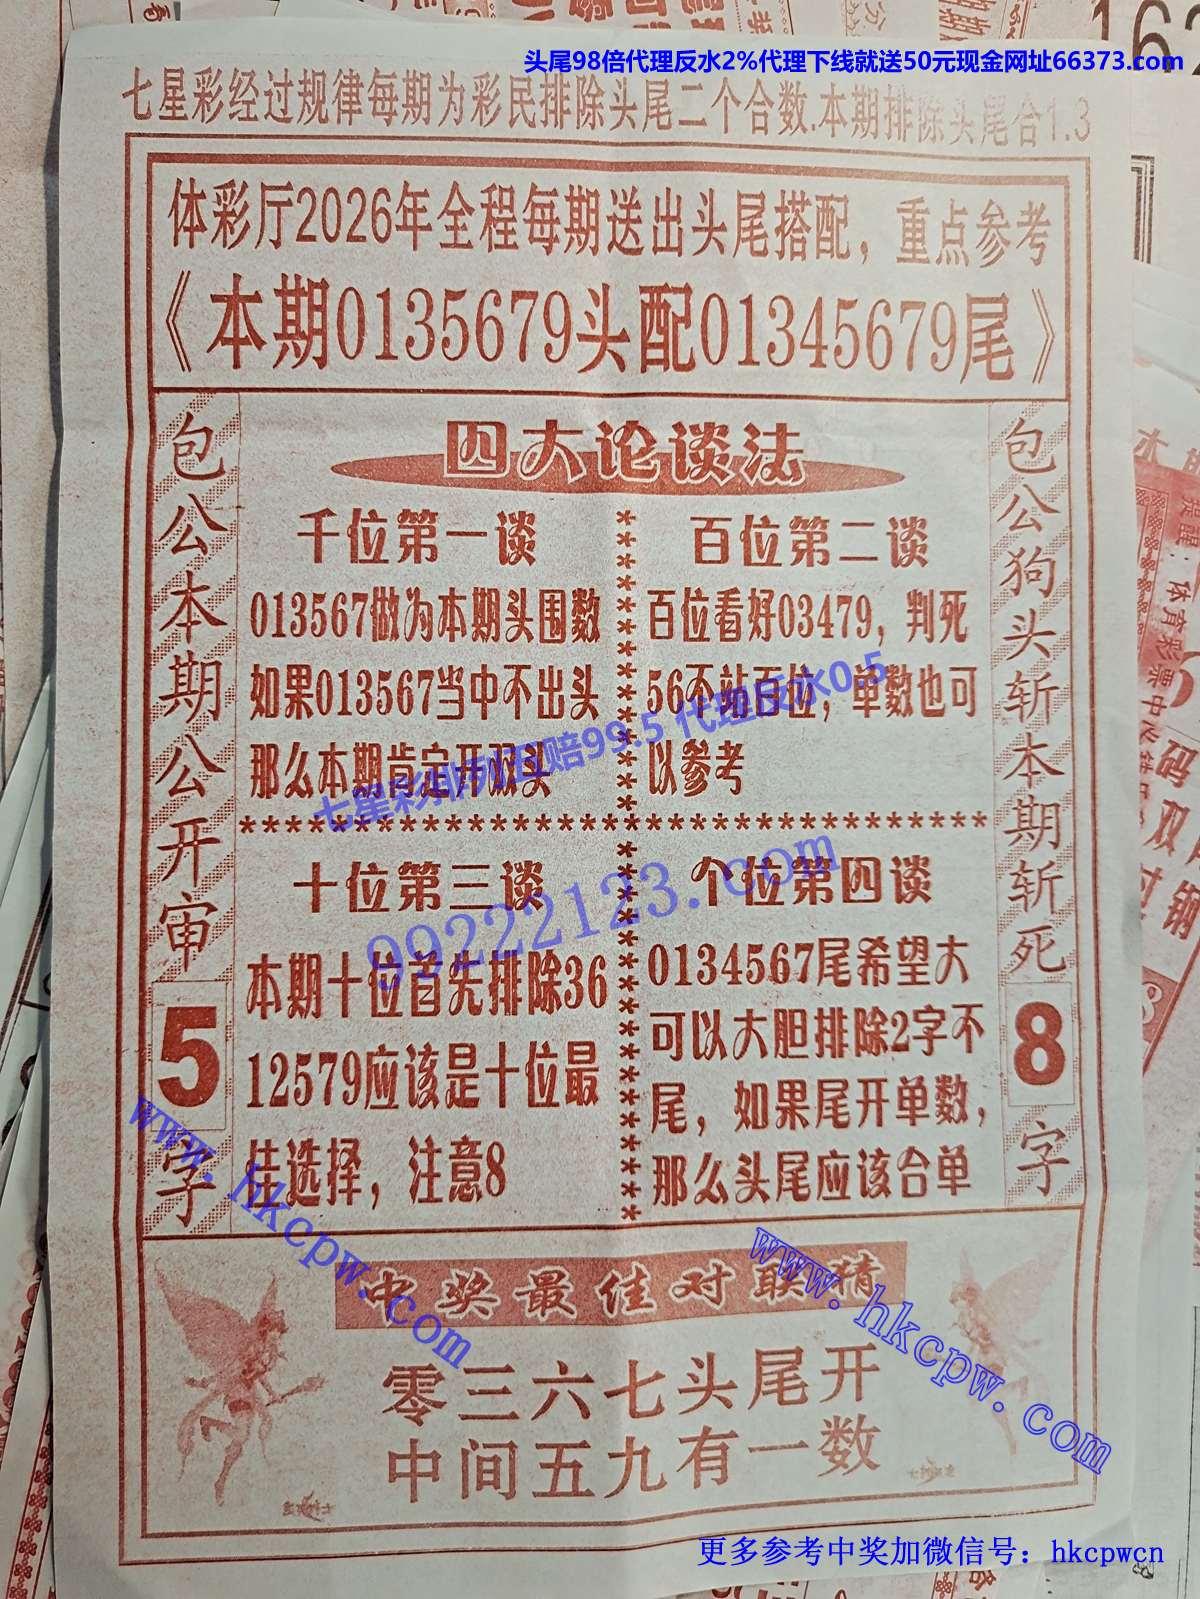 162
头尾98倍代理反水2%代理下线就送50元现金网址66373.com
七星彩经过规律每期为彩民排除头尾二个合数.本期排除头尾合1.3
体彩厅2026年全程每期送出头尾搭配，重点参考
《本期0135679头配01345679尾》
包公本期公开审
5
字
四大论谈法
千位第一谈
013567做为本期头围数
如果013567当中不出头
那么本期肯定开双头
百位第二谈
百位看好03479，判死
56不站百位，单数也可
以参考
七星彩排列五赔99.5 代理反水0.5
********************************
十位第三谈
本期十位首先排除36
12579应该是十位最
佳选择，注意8
个位第四谈
0134567尾希望大
可以大胆排除2字不
尾，如果尾开单数，
那么头尾应该合单
99222123.com
包公狗头斩本期斩死
8
字
www.hkcpw.com
www.hkcpw.com
中奖最佳对联猜
零三六七头尾开
中间五九有一数
更多参考中奖加微信号：hkcpwcn